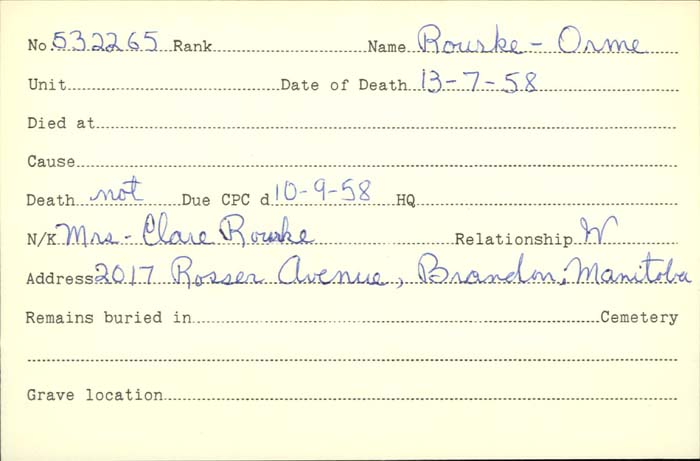 No. 532265 Rank Name Rourke - Orme
Unit Date of Death 13-7-58
Died at
Cause
Death not Due CPC d 10-9-58 HQ
N/K Mrs - Clare Rourke Relationship W
Address 2017 Rosser Avenue, Brandon, Manitoba
Remains buried in Cemetery
Grave location